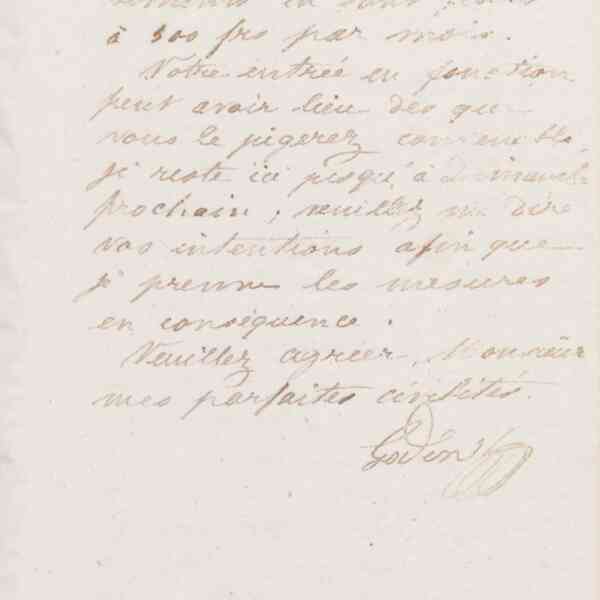 à 300 frs par mois.
Votre entrée en fonction
peut avoir lieu des que
vous le jugerez convenable,
je reste ici jusqu'à Dimanche
prochain ; veuillez me dire
vos intentions afin que
je prenne les mesures
en conséquence.
Veuillez agréer, Monsieur
mes parfaites civilités.
Godin